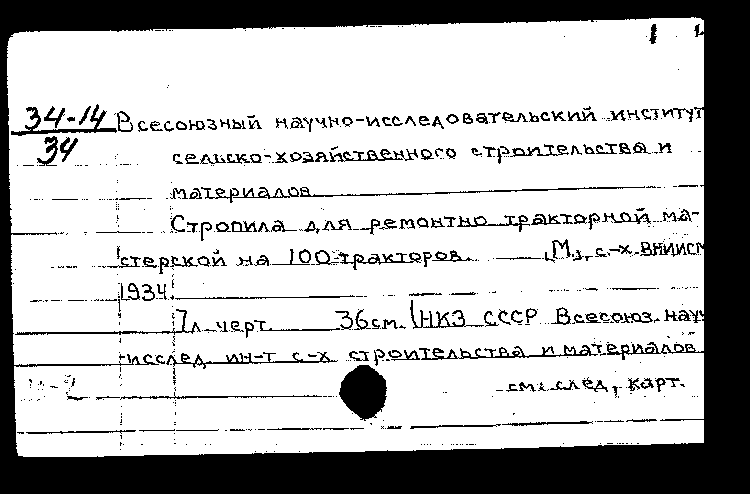 34-14 Всесоюзный научно-исследовательский институт
34 сельско-хозяйственного строительства и
материалов
Стропила для ремонтно тракторной ма-
стерской на 100 тракторов. М., с.-х. ВНИИСМ
1934.
7л. черт. 36см. (НКЗ СССР Всесоюз. науч
-исслед. ин-т с-х строительства и материалов
см. след, карт.